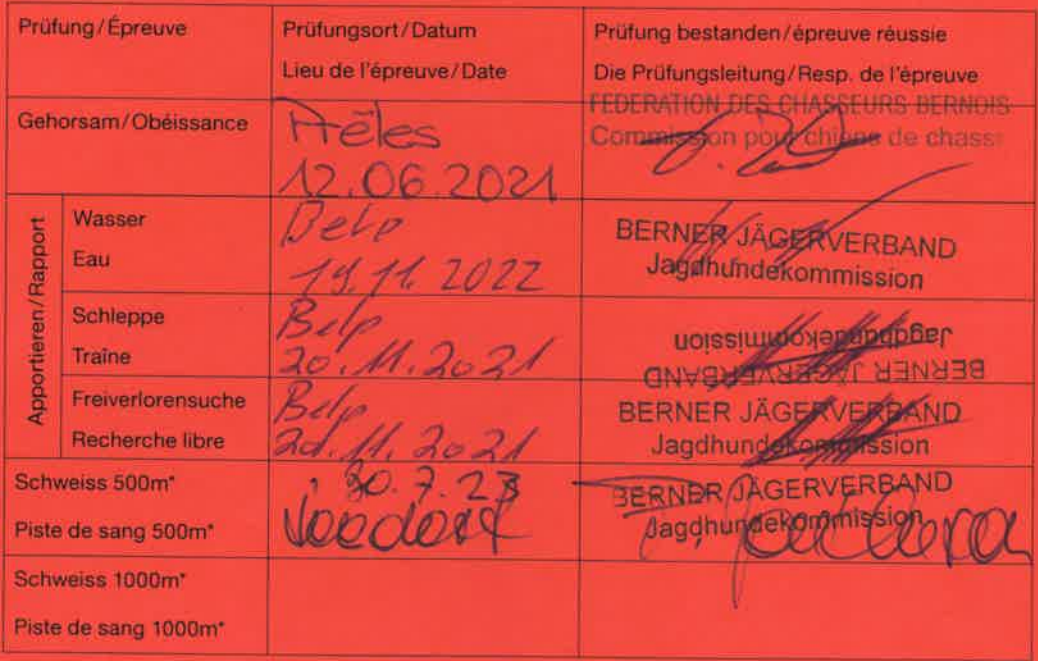 Prüfung/Épreuve
Prüfungsort/Datum
Lieu de l'épreuve/Date
Prüfung bestanden/épreuve réussie
Die Prüfungsleitung/Resp. de l'épreuve
Gehorsam/Obéissance
Prêles
12.06.2021
FEDERATION DES CHASSEURS BERNOIS
Commission pour chiens de chasse
Apportieren/Rapport
Wasser
Eau
Belp
19.11.2022
BERNER JÄGERVERBAND
Jagdhundekommission
Schleppe
Traîne
Belp
20.11.2021
BERNER JÄGERVERBAND
Jagdhundekommission
Freiverlorensuche
Recherche libre
Belp
20.11.2021
BERNER JÄGERVERBAND
Jagdhundekommission
Schweiss 500m*
Piste de sang 500m*
30.7.23
BERNER JÄGERVERBAND
Jagdhundekommission
Schweiss 1000m*
Piste de sang 1000m*